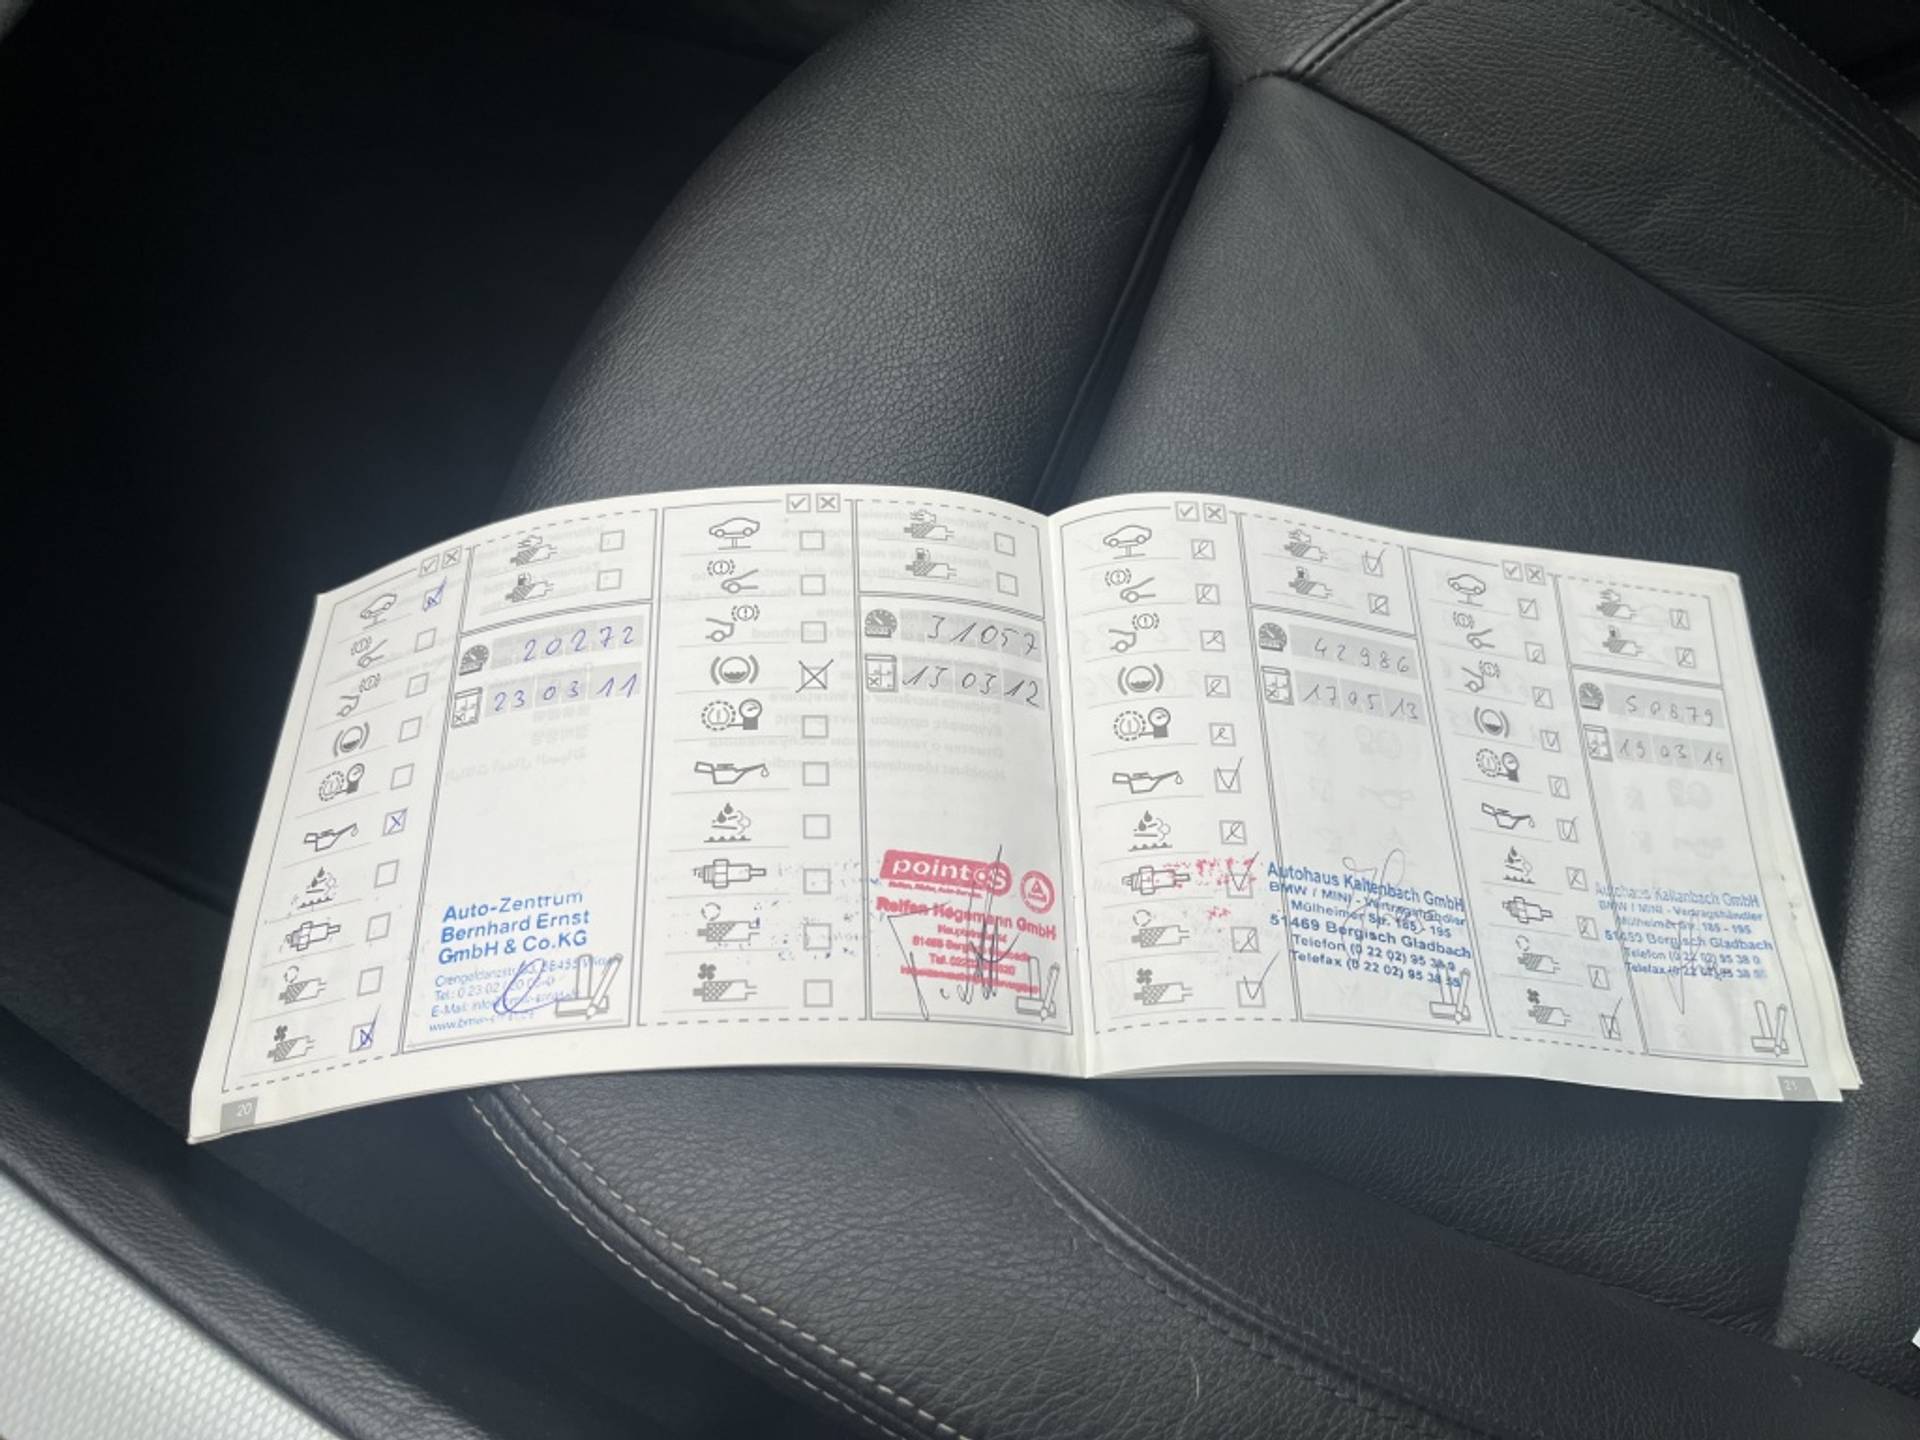 20272
23 03 11
Auto-Zentrum
Bernhard Ernst
GmbH & Co.KG
20
31057
13 03 12
point S
Reifen Hegemann GmbH
42986
17 05 13
Autohaus Kaltenbach GmbH
BMW / MINI - Vertragshändler
Mülheimer Str. 185 - 195
51469 Bergisch Gladbach
Telefon (0 22 02) 95 38 0
Telefax (0 22 02) 95 38 55
50879
19 03 14
Autohaus Kaltenbach GmbH
BMW / MINI - Vertragshändler
Mülheimer Str. 185 - 195
Bergisch Gladbach
Telefon (0 22 02) 95 38 0
Telefax (0 22 02) 95 38
21